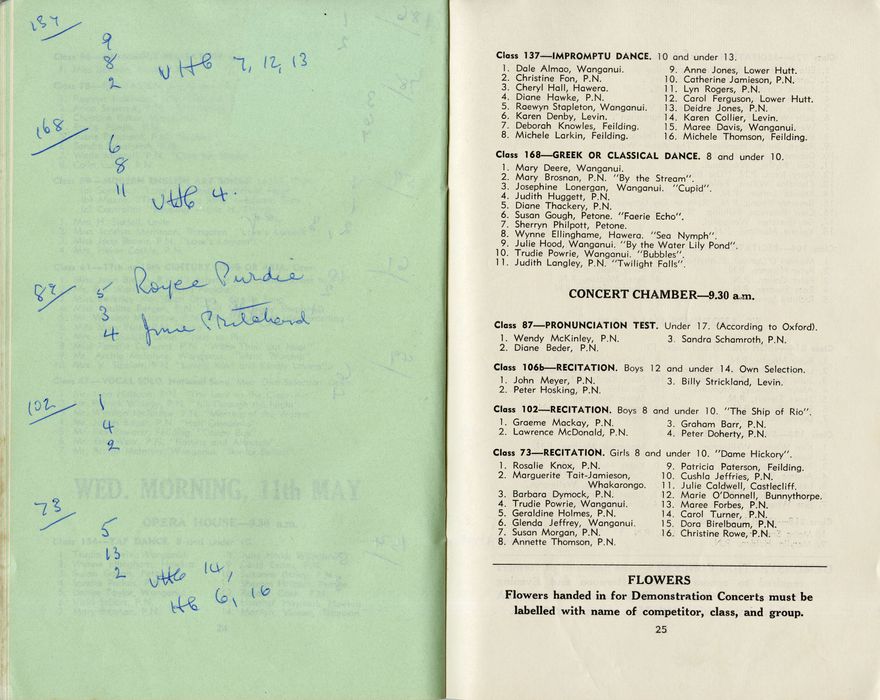 137
9
8
2
VHC 7, 12, 13
168
6
8
11
VHC 4.
87
5 Royce Purdie
3
4 June Pritchard
102
1
4
2
WED. MORNING, 11th MAY
OPERA HOUSE—9.30 a.m.
73
5
13
2
VHC 14,
HC 6, 16
Class 137—IMPROMPTU DANCE. 10 and under 13.
1. Dale Almao, Wanganui.
2. Christine Fon, P.N.
3. Cheryl Hall, Hawera.
4. Diane Hawke, P.N.
5. Raewyn Stapleton, Wanganui.
6. Karen Denby, Levin.
7. Deborah Knowles, Feilding.
8. Michele Larkin, Feilding.
9. Anne Jones, Lower Hutt.
10. Catherine Jamieson, P.N.
11. Lyn Rogers, P.N.
12. Carol Ferguson, Lower Hutt.
13. Deidre Jones, P.N.
14. Karen Collier, Levin.
15. Maree Davis, Wanganui.
16. Michele Thomson, Feilding.
Class 168—GREEK OR CLASSICAL DANCE. 8 and under 10.
1. Mary Deere, Wanganui.
2. Mary Brosnan, P.N. "By the Stream".
3. Josephine Lonergan, Wanganui. "Cupid".
4. Judith Huggett, P.N.
5. Diane Thackery, P.N.
6. Susan Gough, Petone. "Faerie Echo".
7. Sherryn Philpott, Petone.
8. Wynne Ellinghame, Hawera. "Sea Nymph".
9. Julie Hood, Wanganui. "By the Water Lily Pond".
10. Trudie Powrie, Wanganui. "Bubbles".
11. Judith Langley, P.N. "Twilight Falls".
CONCERT CHAMBER—9.30 a.m.
Class 87—PRONUNCIATION TEST. Under 17. (According to Oxford).
1. Wendy McKinley, P.N.
2. Diane Beder, P.N.
3. Sandra Schamroth, P.N.
Class 106b—RECITATION. Boys 12 and under 14. Own Selection.
1. John Meyer, P.N.
2. Peter Hosking, P.N.
3. Billy Strickland, Levin.
Class 102—RECITATION. Boys 8 and under 10. "The Ship of Rio".
1. Graeme Mackay, P.N.
2. Lawrence McDonald, P.N.
3. Graham Barr, P.N.
4. Peter Doherty, P.N.
Class 73—RECITATION. Girls 8 and under 10. "Dame Hickory".
1. Rosalie Knox, P.N.
2. Marguerite Tait-Jamieson,
Whakarongo.
3. Barbara Dymock, P.N.
4. Trudie Powrie, Wanganui.
5. Geraldine Holmes, P.N.
6. Glenda Jeffrey, Wanganui.
7. Susan Morgan, P.N.
8. Annette Thomson, P.N.
9. Patricia Paterson, Feilding.
10. Cushla Jeffries, P.N.
11. Julie Caldwell, Castlecliff.
12. Marie O'Donnell, Bunnythorpe.
13. Maree Forbes, P.N.
14. Carol Turner, P.N.
15. Dora Birelbaum, P.N.
16. Christine Rowe, P.N.
FLOWERS
Flowers handed in for Demonstration Concerts must be
labelled with name of competitor, class, and group.
25